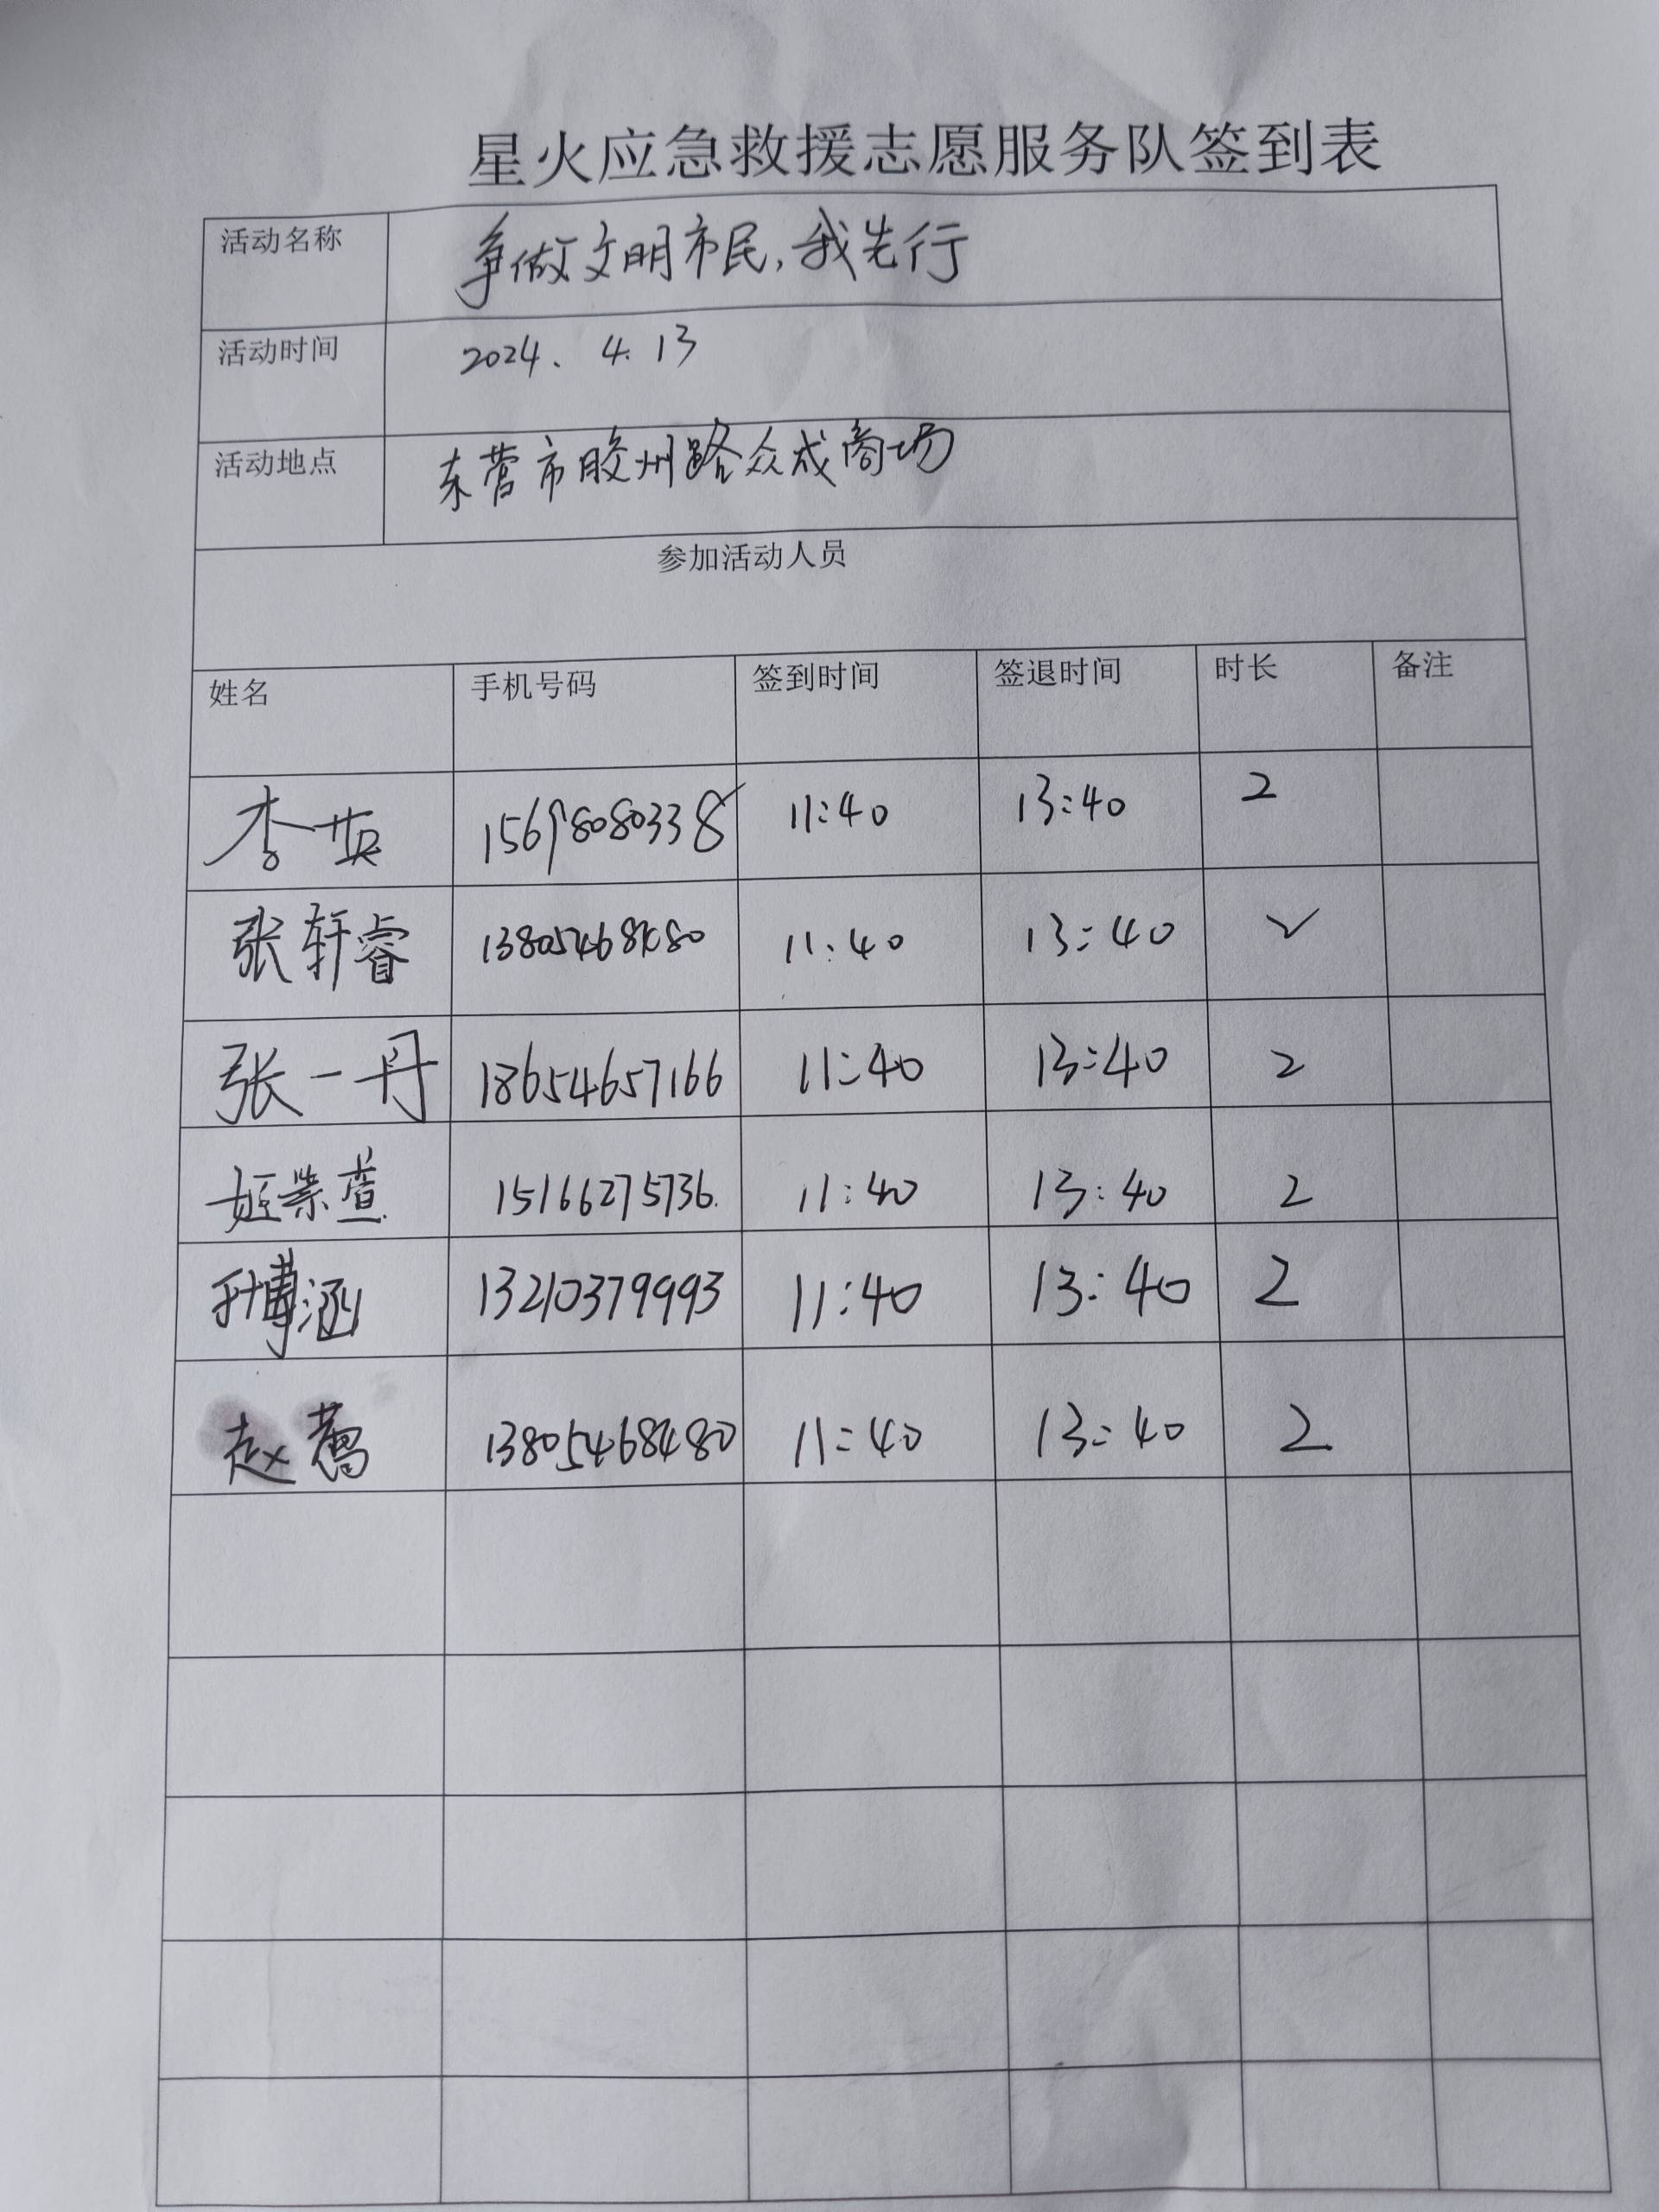 星火应急救援志愿服务队签到表
活动名称 争做文明市民,我先行
活动时间 2024. 4. 13
活动地点 东营市胶州路众成商场
参加活动人员
姓名 手机号码 签到时间 签退时间 时长 备注
李英 15698080338 11:40 13:40 2
张轩睿 13805468480 11:40 13:40 2
张一丹 18654657166 11:40 13:40 2
姬崇萱 15166275736. 11:40 13:40 2
孙博涵 13210379993 11:40 13:40 2
赵 13805468480 11:40 13:40 2